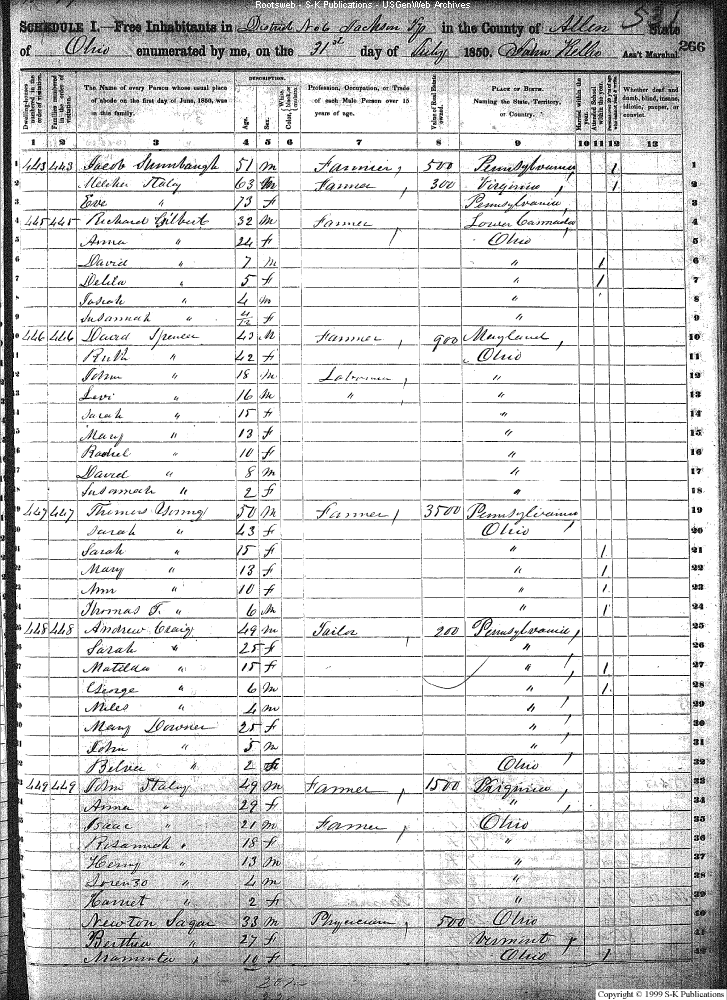 Rootsweb - S-K Publications - USGenWeb Archives
531
SCHEDULE I.—Free Inhabitants in District No 6 Jackson Tp in the County of Allen State
of Ohio enumerated by me, on the 31st day of July 1850. Ass't Marshal. 266
Dwelling-houses numbered in the order of visitation. Families numbered in the order of visitation. The Name of every Person whose usual place of abode on the first day of June, 1850, was in this family. DESCRIPTION. Age. Sex. Color, White, black, or mulatto. Profession, Occupation, or Trade of each Male Person over 15 years of age. Value of Real Estate owned. PLACE OF BIRTH. Naming the State, Territory, or Country. Married within the year. Attended School within the year. Whether deaf and dumb, blind, insane, idiotic, pauper, or convict.
1 2 3 4 5 6 7 8 9 10 11 12 13
1 443 443 Jacob 51 m Farmer, 500 Pennsylvania 1 1
2 Staley 63 m Farmer, 300 Virginia, 1 2
3 Eve " 73 f Pennsylvania, 3
4 445 445 Richard Gilbert 32 m Farmer Lower Cannada, 4
5 Anna " 24 f , Ohio 5
6 David " 7 m " 1 6
7 Delila " 5 f " 1 7
8 Josiah " 4 m " 8
9 Susannah " 4/12 f " 9
10 446 446 David Spencer 43 M Farmer, 900 Maryland, 10
11 Ruth " 42 f Ohio 11
12 John " 18 m Laborer, " 12
13 Levi " 16 m " , " 13
14 Sarah " 15 f " 14
15 Mary " 13 f " 15
16 Rachel " 10 f " 16
17 David " 8 m " 17
18 Susannah " 2 f " 18
19 447 447 Thomas Young 50 M Farmer, 3500 Pennsylvania 19
20 Sarah " 43 f Ohio 20
21 Sarah " 15 f " 1 21
22 Mary " 13 f " 1 22
23 Ann " 10 f " 1 23
24 Thomas F. " 6 M " 1 24
25 448 448 Andrew Craig 49 m Tailor 200 Pennsylvania, 25
26 Sarah " 25 f " , 26
27 Matilda " 15 f " , 1 27
28 George " 6 m " , 1 28
29 Miles " 4 m " , 29
30 Mary Downer 25 f " , 30
31 John " 5 m " , 31
32 " 2 f Ohio 32
33 449 449 John Staley 49 M Farmer, 1500 Virginia, 33
34 Anna " 29 f " , 34
35 Isaac " 21 m Farmer, Ohio 35
36 Rosannah " 18 f " 36
37 Henry " 13 m " 37
38 Lorenzo " 4 m " 38
39 Harriet " 2 f " 39
40 Newton Sager 33 m Physician, 500 Ohio 40
41 Berthia " 27 f Vermont, 41
42 " 10 f Ohio 1 42
Copyright © 1999 S-K Publications